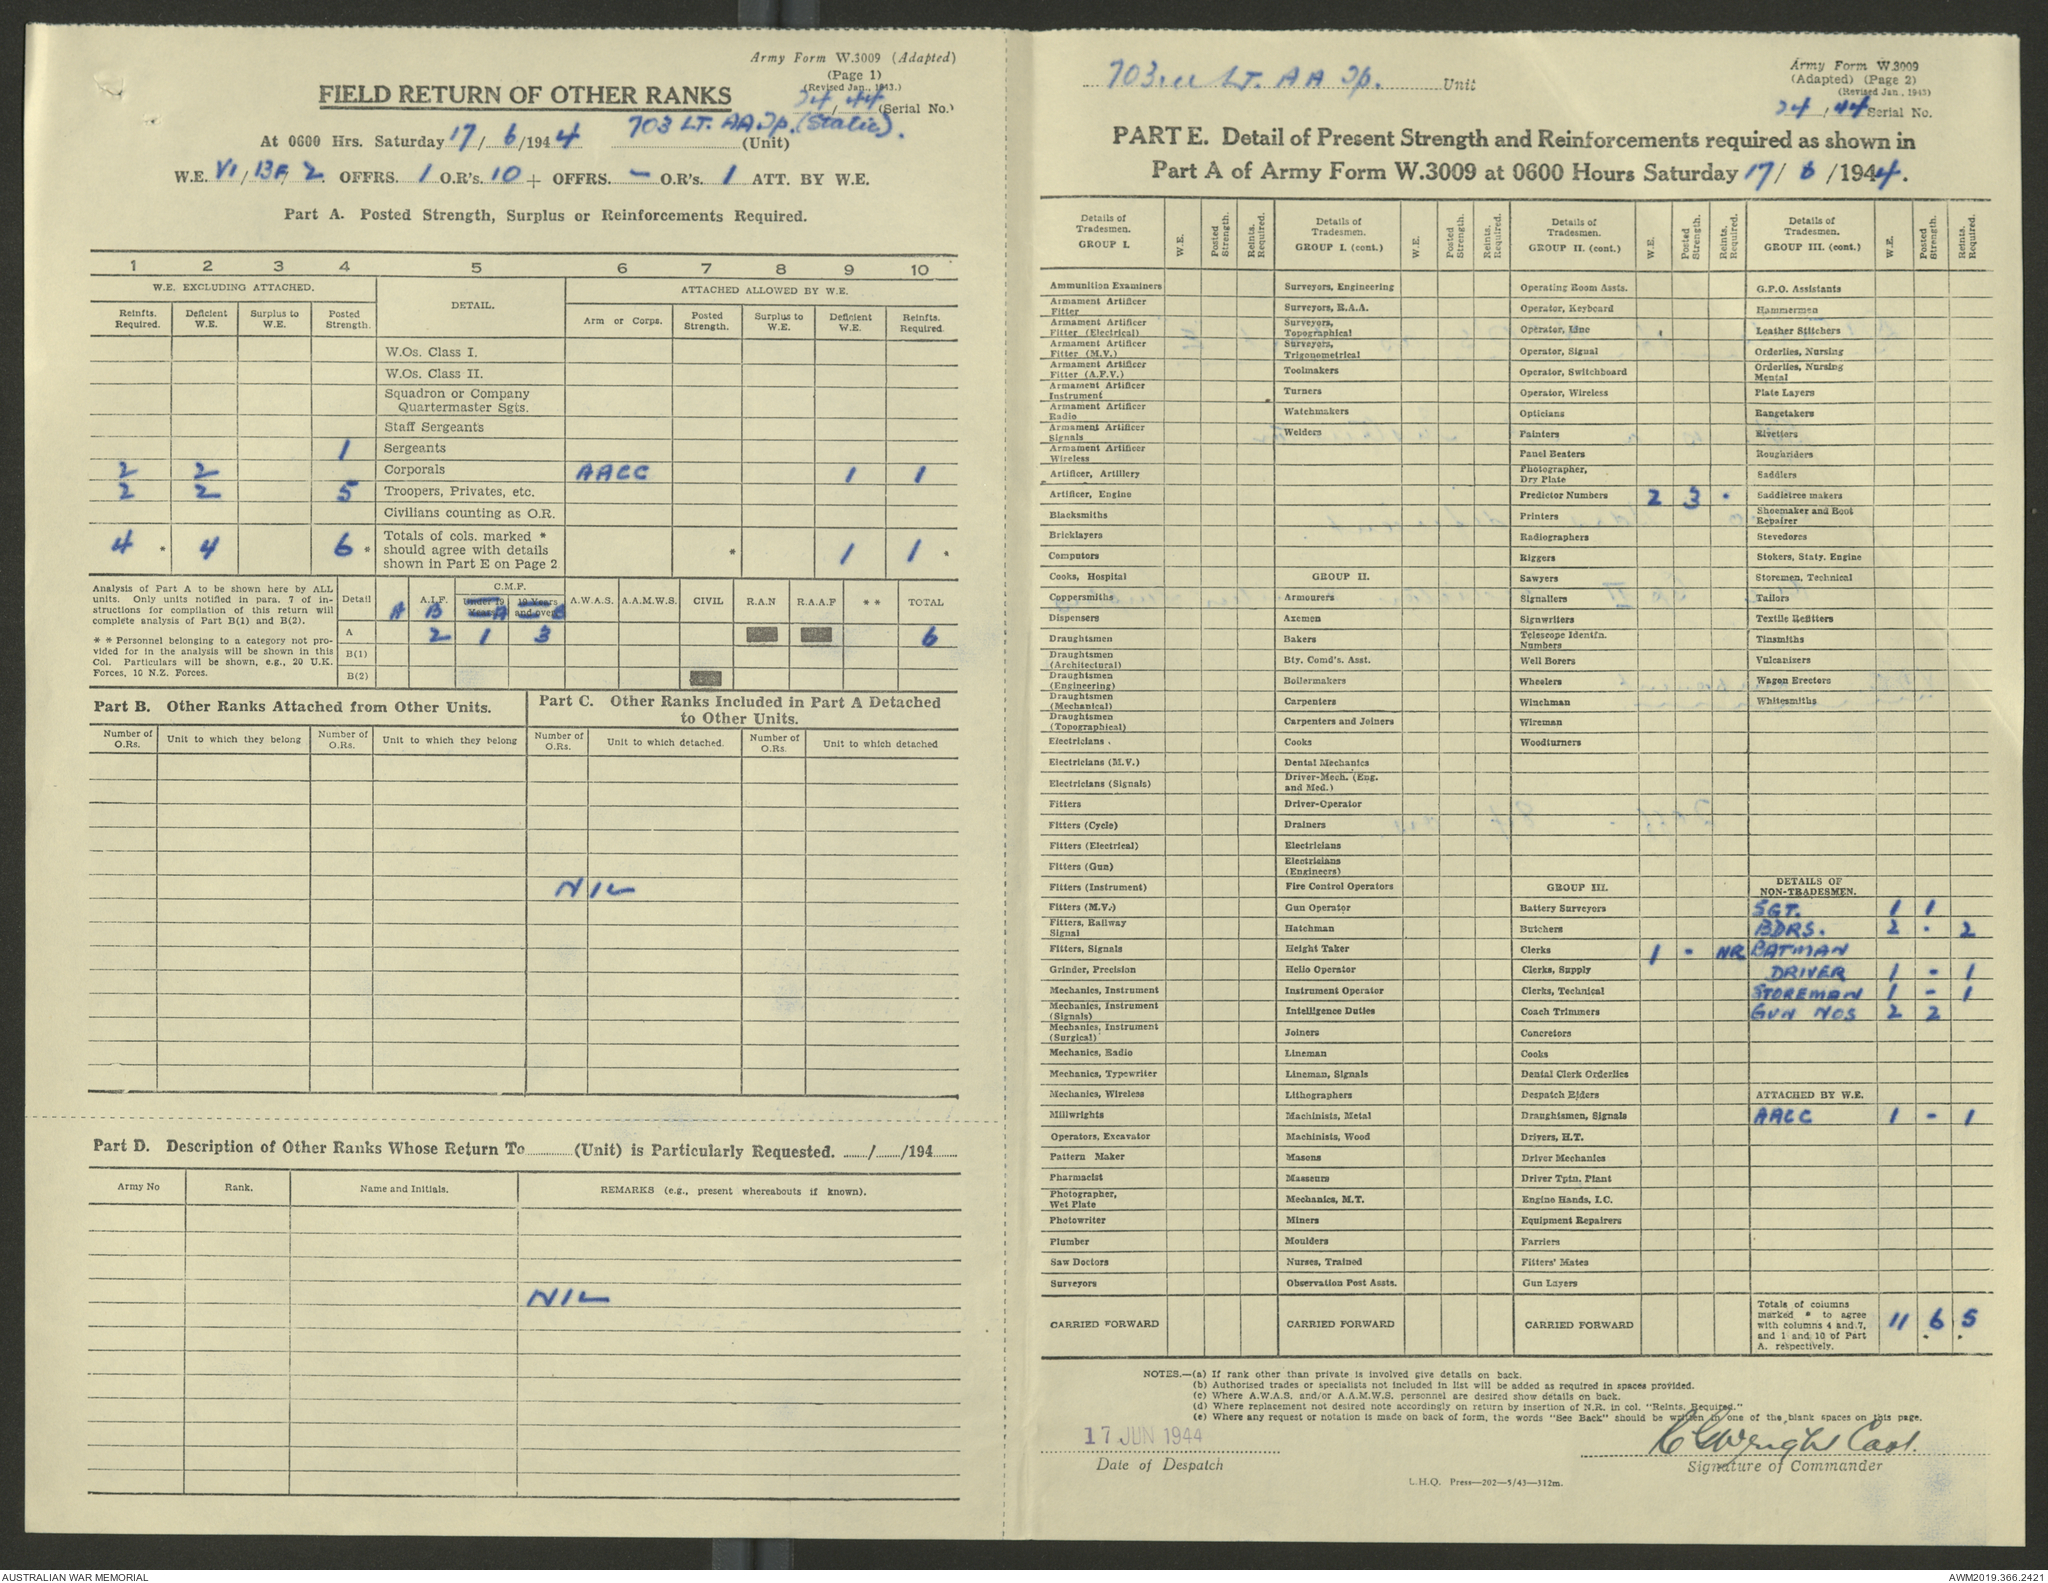 Army Form W.3009 (Adapted)
(Page 1)
(Revised Jan., 1943.)
FIELD RETURN OF OTHER RANKS
24/44 (Serial No.)
At 0600 Hrs. Saturday 17/6/1944 703 LT. AA Tp. (Static). (Unit)
W.E. VI/13F/2 OFFRS. 1 O.R's. 10 + OFFRS. - O.R's. 1 ATT. BY W.E.
Part A. Posted Strength, Surplus or Reinforcements Required.
1 2 3 4 5 6 7 8 9 10
W.E. EXCLUDING ATTACHED. DETAIL. ATTACHED ALLOWED BY W.E.
Reinfts. Required. Deficient W.E. Surplus to W.E. Posted Strength. Arm or Corps. Posted Strength. Surplus to W.E. Deficient W.E. Reinfts. Required.
W.Os. Class I.
W.Os. Class II.
Squadron or Company
Quartermaster Sgts.
Staff Sergeants
1 Sergeants
2 2 Corporals AACC 1 1
2 2 5 Troopers, Privates, etc.
Civilians counting as O.R.
4 * 4 6 * Totals of cols. marked * should agree with details shown in Part E on Page 2 * 1 1 *
Analysis of Part A to be shown here by ALL
units. Only units notified in para. 7 of in-
structions for compilation of this return will
complete analysis of Part B(1) and B(2).
* * Personnel belonging to a category not pro-
vided for in the analysis will be shown in this
Col. Particulars will be shown, e.g., 20 U.K.
Forces, 10 N.Z. Forces.
Detail A.I.F. C.M.F. A.W.A.S. A.A.M.W.S. CIVIL R.A.N R.A.A.F * * TOTAL
A B Under 19 Years A 19 Years and over B
A 2 1 3 6
B(1)
B(2)
Part B. Other Ranks Attached from Other Units.
Part C. Other Ranks Included in Part A Detached
to Other Units.
Number of O.Rs. Unit to which they belong Number of O.Rs. Unit to which they belong Number of O.Rs. Unit to which detached. Number of O.Rs. Unit to which detached
NIL
Part D. Description of Other Ranks Whose Return To (Unit) is Particularly Requested. / /194
Army No Rank. Name and Initials. REMARKS (e.g., present whereabouts if known).
NIL
703 LT. AA Tp. Unit
Army Form W.3009
(Adapted) (Page 2)
(Revised Jan., 1943)
24/44 Serial No.
PART E. Detail of Present Strength and Reinforcements required as shown in
Part A of Army Form W.3009 at 0600 Hours Saturday 17/6/1944.
Details of Tradesmen. GROUP I. W.E. Posted Strength. Reints. Required.
Ammunition Examiners
Armament Artificer Fitter
Armament Artificer Fitter (Electrical)
Armament Artificer Fitter (M.V.)
Armament Artificer Fitter (A.F.V.)
Armament Artificer Instrument
Armament Artificer Radio
Armament Artificer Signals
Armament Artificer Wireless
Artificer, Artillery
Artificer, Engine
Blacksmiths
Bricklayers
Computors
Cooks, Hospital
Coppersmiths
Dispensers
Draughtsmen
Draughtsmen (Architectural)
Draughtsmen (Engineering)
Draughtsmen (Mechanical)
Draughtsmen (Topographical)
Electricians .
Electricians (M.V.)
Electricians (Signals)
Fitters
Fitters (Cycle)
Fitters (Electrical)
Fitters (Gun)
Fitters (Instrument)
Fitters (M.V.)
Fitters, Railway Signal
Fitters, Signals
Grinder, Precision
Mechanics, Instrument
Mechanics, Instrument (Signals)
Mechanics, Instrument (Surgical)
Mechanics, Radio
Mechanics, Typewriter
Mechanics, Wireless
Millwrights
Operators, Excavator
Pattern Maker
Pharmacist
Photographer, Wet Plate
Photowriter
Plumber
Saw Doctors
Surveyors
CARRIED FORWARD
Details of Tradesmen. GROUP I. (cont.) W.E. Posted Strength. Reints. Required.
Surveyors, Engineering
Surveyors, R.A.A.
Surveyors, Topographical
Surveyors, Trigonometrical
Toolmakers
Turners
Watchmakers
Welders
GROUP II.
Armourers
Axemen
Bakers
Bty. Comd's. Asst.
Boilermakers
Carpenters
Carpenters and Joiners
Cooks
Dental Mechanics
Driver-Mech. (Eng. and Med.)
Driver-Operator
Drainers
Electricians
Electricians (Engineers)
Fire Control Operators
Gun Operator
Hatchman
Height Taker
Hello Operator
Instrument Operator
Intelligence Duties
Joiners
Lineman
Lineman, Signals
Lithographers
Machinists, Metal
Machinists, Wood
Masons
Masseurs
Mechanics, M.T.
Miners
Moulders
Nurses, Trained
Observation Post Assts.
CARRIED FORWARD
Details of Tradesmen. GROUP II. (cont.) W.E. Posted Strength. Reints. Required.
Operating Room Assts.
Operator, Keyboard
Operator, Line
Operator, Signal
Operator, Switchboard
Operator, Wireless
Opticians
Painters
Panel Beaters
Photographer, Dry Plate
Predictor Numbers 2 3 -
Printers
Radiographers
Riggers
Sawyers
Signallers
Signwriters
Telescope Identfn. Numbers
Well Borers
Wheelers
Winchman
Wireman
Woodturners
GROUP III.
Battery Surveyors
Butchers
Clerks 1 - NR
Clerks, Supply
Clerks, Technical
Coach Trimmers
Concretors
Cooks
Dental Clerk Orderlies
Despatch Riders
Draughtsmen, Signals
Drivers, H.T.
Driver Mechanics
Driver Tptn. Plant
Engine Hands, I.C.
Equipment Repairers
Farriers
Fitters' Mates
Gun Layers
CARRIED FORWARD
Details of Tradesmen. GROUP III. (cont.) W.E. Posted Strength. Reints. Required.
G.P.O. Assistants
Hammermen
Leather Stitchers
Orderlies, Nursing
Orderlies, Nursing Mental
Plate Layers
Rangetakers
Rivetters
Roughriders
Saddlers
Saddletree makers
Shoemaker and Boot Repairer
Stevedores
Stokers, Staty. Engine
Storemen, Technical
Tailors
Textile Refitters
Tinsmiths
Vulcanizers
Wagon Erectors
Whitesmiths
DETAILS OF NON-TRADESMEN.
SGT. 1 1
BDRS. 2 - 2
BATMAN
DRIVER 1 - 1
STOREMAN 1 - 1
GUN NOS 2 2
ATTACHED BY W.E.
AACC 1 - 1
Totals of columns marked * to agree with columns 4 and 7, and 1 and 10 of Part A. respectively. 11 6 5
NOTES.—(a) If rank other than private is involved give details on back.
(b) Authorised trades or specialists not included in list will be added as required in spaces provided.
(c) Where A.W.A.S. and/or A.A.M.W.S. personnel are desired show details on back.
(d) Where replacement not desired note accordingly on return by insertion of N.R. in col. "Reints. Required."
(e) Where any request or notation is made on back of form, the words "See Back" should be written in one of the blank spaces on this page.
17 JUN 1944
Date of Despatch
Wright Capt.
Signature of Commander
L.H.Q. Press—202—5/43—312m.
AUSTRALIAN WAR MEMORIAL
AWM2019.366.2421